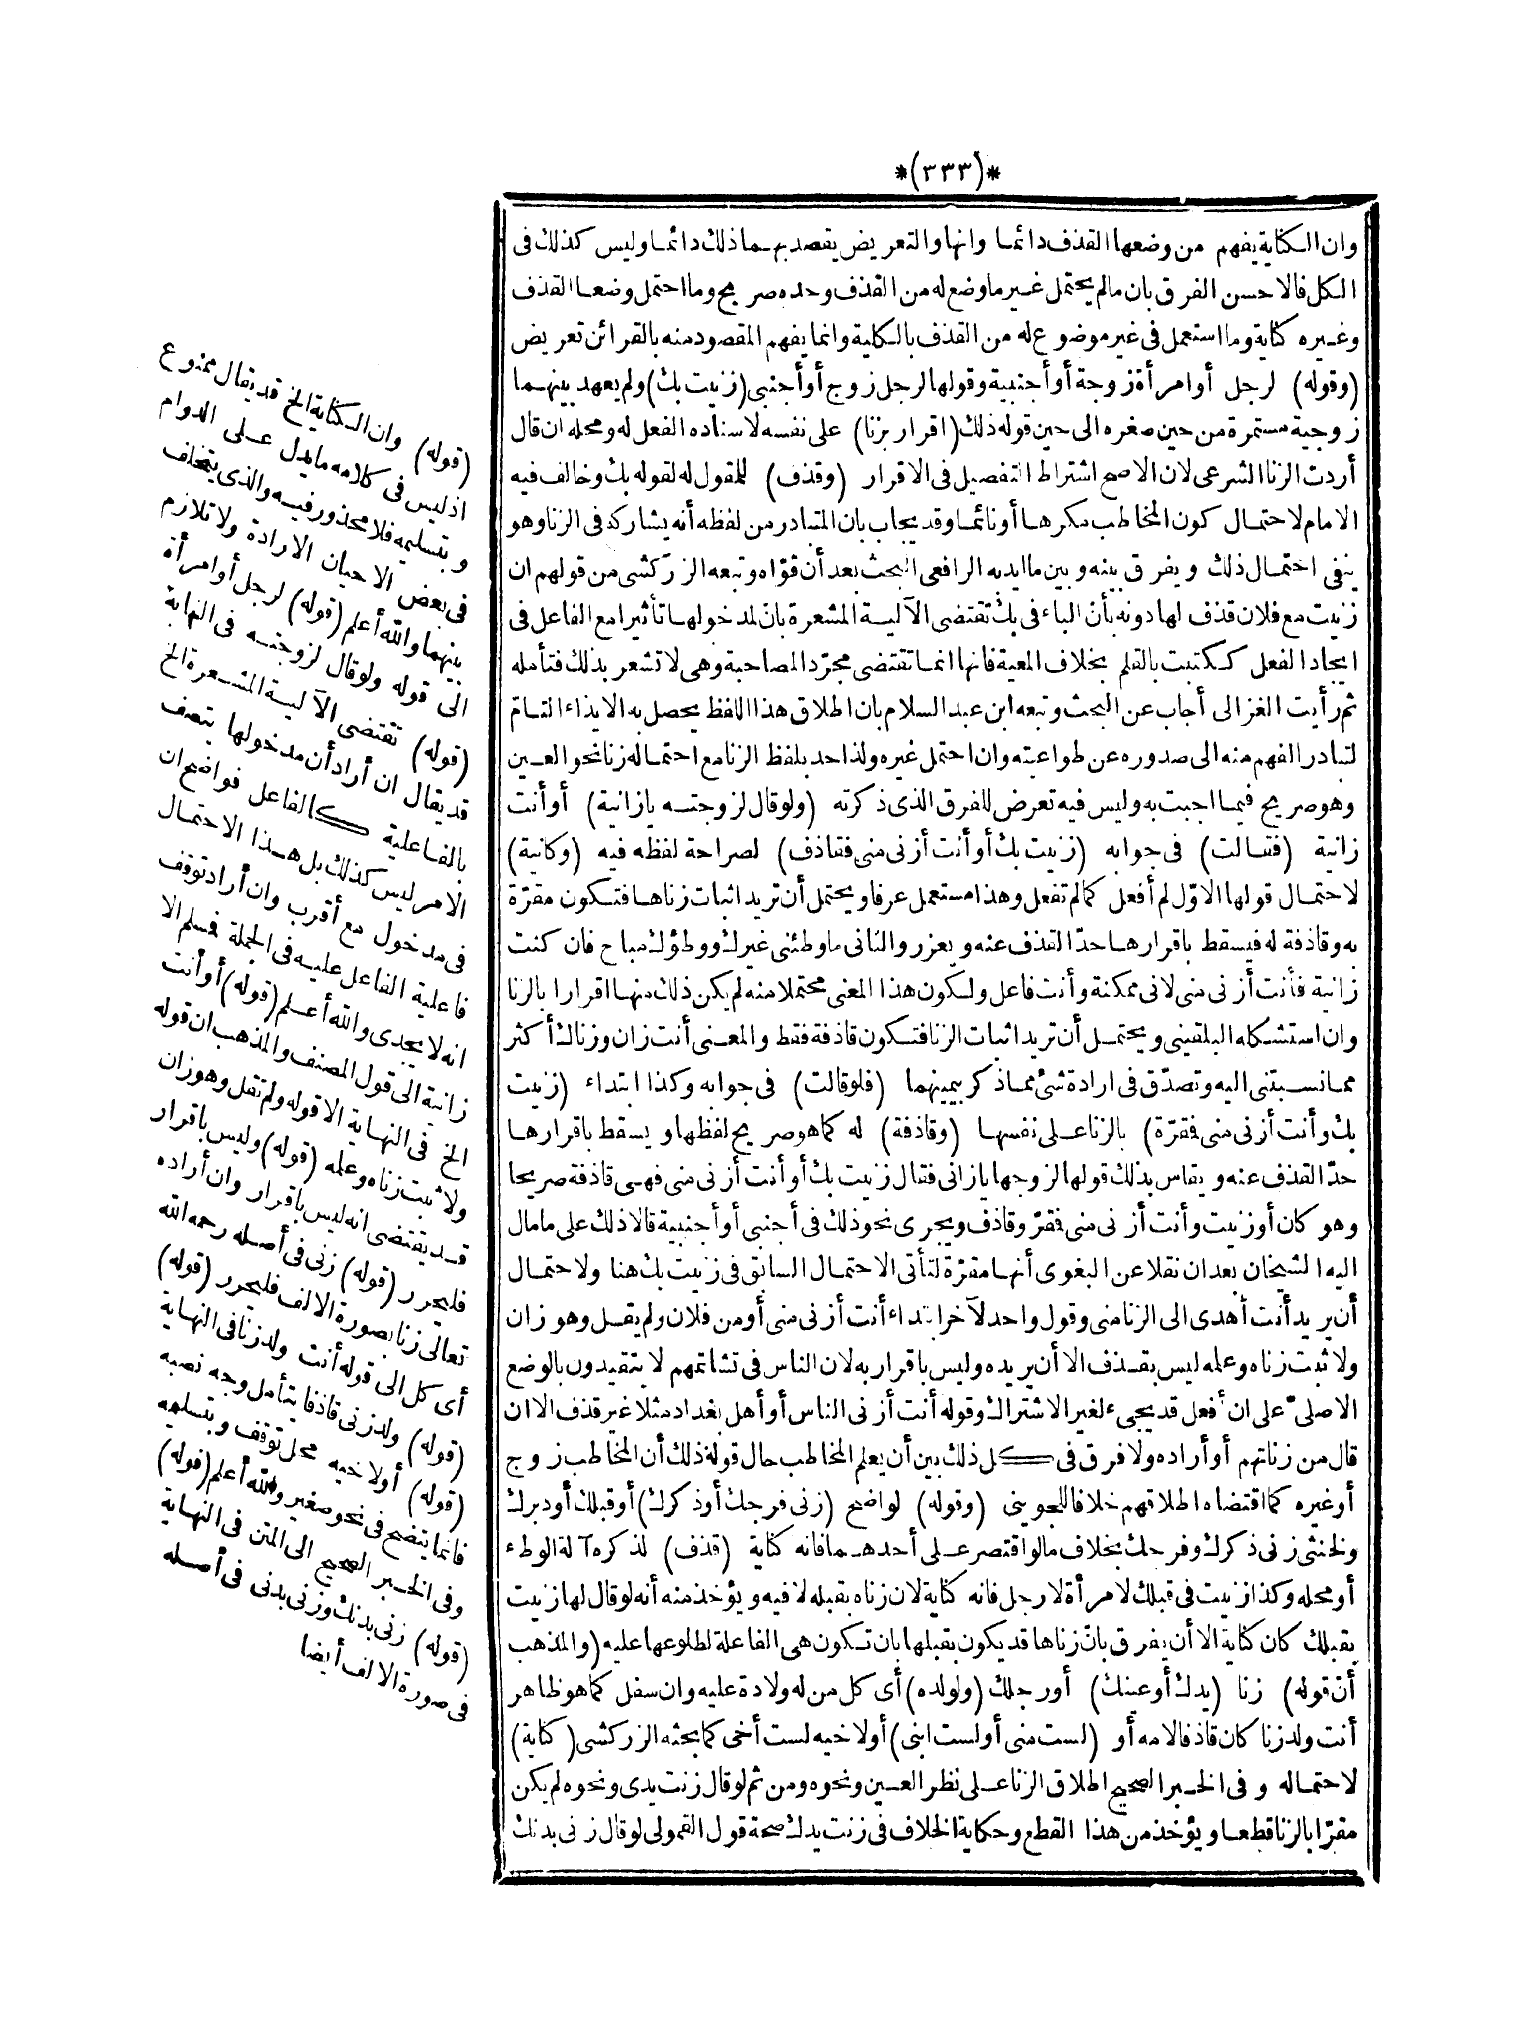 *(٣٣٣)*
وان الكناية يفهم من وضعها القذف دائما وانها والتعريض يقصد بهما ذلك دائما وليس كذلك فى
الكل فالاحسن الفرق بان مالم يحتمل غير ما وضع له من القذف وحده صريح وما احتمل وضعا القذف
وغيره كناية وما استعمل فى غير موضوع له من القذف بالكلية وانما يفهم المقصود منه بالقرائن تعريض
(وقوله) لرجل أوامرأة زوجة أو أجنبية وقولها لرجل زوج أو أجنبى (زنيت بك) ولم يعهد بينهما
زوجية مستمرة من حين صغره الى حين قوله ذلك (اقرار بزنا) على نفسه لاسناده الفعل له ومحله ان قال
أردت الزنا الشرعى لان الاصح اشتراط التفصيل فى الاقرار (وقذف) للمقول له لقوله بك وخالف فيه
الامام لاحتمال كون المخاطب مكرها أو نائما وقد يجاب بان المتبادر من لفظه أنه يشاركه فى الزنا وهو
ينفى احتمال ذلك ويفرق بينه وبين ما ايد به الرافعى البحث بعد أن قوّاه وتبعه الزركشى من قولهم ان
زنيت مع فلان قذف لها دونه بأن الباء فى بك تقتضى الآلية المشعرة بان لمدخولها تأثيرا مع الفاعل فى
ايجاد الفعل ككتبت بالقلم بخلاف المعية فانها انما تقتضى مجرّد المصاحبة وهى لا تشعر بذلك فتأمله
ثم رأيت الغزالى أجاب عن البحث وتبعه ابن عبد السلام بان اطلاق هذا اللفظ يحصل به الايذاء التامّ
لتبادر الفهم منه الى صدوره عن طواعيته وان احتمل غيره ولذا حد بلفظ الزنا مع احتماله زنا نحو العين
وهو صريح فيما اجبت به وليس فيه تعرض للفرق الذى ذكرته (ولو قال لزوجته يا زانية) أو أنت
زانية (فقالت) فى جوابه (زنيت بك أو أنت أزنى منى فقاذف) لصراحة لفظه فيه (وكانية)
لاحتمال قولها الاوّل لم أفعل كما لم تفعل وهذا مستعمل عرفا ويحتمل أن تريد اثبات زناها فتكون مقرّة
به وقاذفة له فيسقط باقرارها حدّ القذف عنه ويعزر والثانى ما وطئنى غيرك ووطؤك مباح فان كنت
زانية فأنت أزنى منى لانى ممكنة وأنت فاعل ولكون هذا المعنى محتملا منه لم يكن ذلك منها اقرارا بالزنا
وان استشكله البلقينى ويحتمل أن تريد اثبات الزنا فتكون قاذفة فقط والمعنى أنت زان وزناك أكثر
مما نسبتنى اليه وتصدّق فى ارادة شئ مما ذكر بيمينها (فلو قالت) فى جوابه وكذا ابتداء (زنيت
بك وأنت أزنى منى فمقرّة) بالزنا على نفسها (وقاذفة) له كما هو صريح لفظها ويسقط باقرارها
حدّ القذف عنه ويقاس بذلك قولها لزوجها يا زانى فقال زنيت بك أو أنت أزنى منى فهى قاذفة صريحا
وهو كان أو زنيت وأنت أزنى منى فمقرّ وقاذف ويجرى نحو ذلك فى أجنبى أو أجنبية قالا ذلك على ما مال
اليه الشيخان بعد ان نقلا عن البغوى أنها مقرّة لتأتى الاحتمال السابق فى زنيت بك هنا ولاحتمال
أن يريد أنت أهدى الى الزنا منى وقول واحد لآخر ابتداء أنت أزنى منى أو من فلان ولم يقل وهو زان
ولا ثبت زناه وعلمه ليس بقذف الا أن يريده وليس باقرار به لان الناس فى تشاتمهم لا يتقيدون بالوضع
الاصلىّ على ان أفعل قد يجىء لغير الاشتراك وقوله أنت أزنى الناس أو أهل بغداد مثلا غير قذف الا ان
قال من زناتهم أو أراده ولا فرق فى كل ذلك بين أن يعلم المخاطب حال قوله ذلك أن المخاطب زوج
أو غيره كما اقتضاه اطلاقهم خلافا للجوينى (وقوله) لواضح (زنى فرجك أو ذكرك) أو قبلك أو دبرك
ولخنثى زنى ذكرك وفرجك بخلاف ما لو اقتصر على أحدهما فانه كناية (قذف) لذكره آلة الوطء
أو محله وكذا زنيت فى قبلك لامرأة لا رجل فانه كناية لان زناه بقبله لا فيه ويؤخذ منه أنه لو قال لها زنيت
بقبلك كان كناية الا أن يفرق بانّ زناها قد يكون بقبلها بان تكون هى الفاعلة لطلوعها عليه (والمذهب
أنّ قوله) زنا (يدك أو عينك) أو رجلك (ولولده) أى كل من له ولادة عليه وان سفل كما هو ظاهر
أنت ولد زنا كان قاذفا لامه أو (لست منى أو لست ابنى) أو لاخيه لست أخى كما بحثه الزركشى (كناية)
لاحتماله وفى الخبر الصحيح اطلاق الزنا على نظر العين ونحوه ومن ثم لو قال زنت يدى ونحوه لم يكن
مقرّا بالزنا قطعا ويؤخذ من هذا القطع وحكاية الخلاف فى زنت يدك صحة قول القمولى لو قال زنى بدنك
(قوله) وان الكناية الخ قد يقال ممنوع
اذ ليس فى كلامه ما يدل على الدوام
وبتسليمه فلا محذور فيه والذى يتخلف
فى بعض الاحيان الارادة ولا تلازم
بينهما والله أعلم (قوله) لرجل أو امرأة
الى قوله ولو قال لزوجته فى النهاية
(قوله) تقتضى الآلية المشعرة الخ
قد يقال ان أراد أن مدخولها يتصف
بالفاعلية كالفاعل فواضح ان
الامر ليس كذلك بل هذا الاحتمال
فى مدخول مع أقرب وان أراد توقف
فاعلية الفاعل عليه فى الجملة فمسلم الا
انه لا يجدى والله أعلم (قوله) أو أنت
زانية الى قول المصنف والمذهب ان قوله
الخ فى النهاية الا قوله ولم تقل وهو زان
ولا ثبت زناه وعلمه (قوله) وليس باقرار
قد يقتضى انه ليس باقرار وان أراده
فليحرر (قوله) زنى فى أصله رحمه الله
تعالى زنا بصورة الالف فليحرر (قوله)
أى كل الى قوله أنت ولد زنا فى النهاية
(قوله) ولد زنى قاذفا يتأمل وجه نصبه
(قوله) أو لاخيه محل توقف وبتسليمه
فانما يتضح فى نحو صغير والله أعلم (قوله)
وفى الخبر الصحيح الى المتن فى النهاية
(قوله) زنى بدنك وزنى بدنى فى أصله
فى صورة الالف أيضا